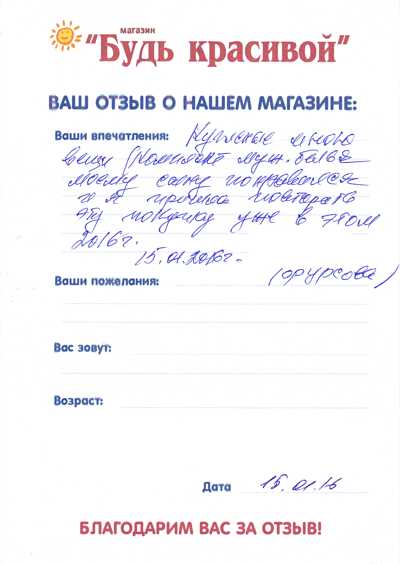 магазин
"Будь красивой"
ВАШ ОТЗЫВ О НАШЕМ МАГАЗИНЕ:
Ваши впечатления: Купленная мною
вещь (комплект муж. белья
моему сыну понравился
и я пришла повторить
эту покупку уже в этом
2016г.
15.01.2016г.
Ваши пожелания: (Фурсова)
Вас зовут:
Возраст:
Дата 15.01.16
БЛАГОДАРИМ ВАС ЗА ОТЗЫВ!